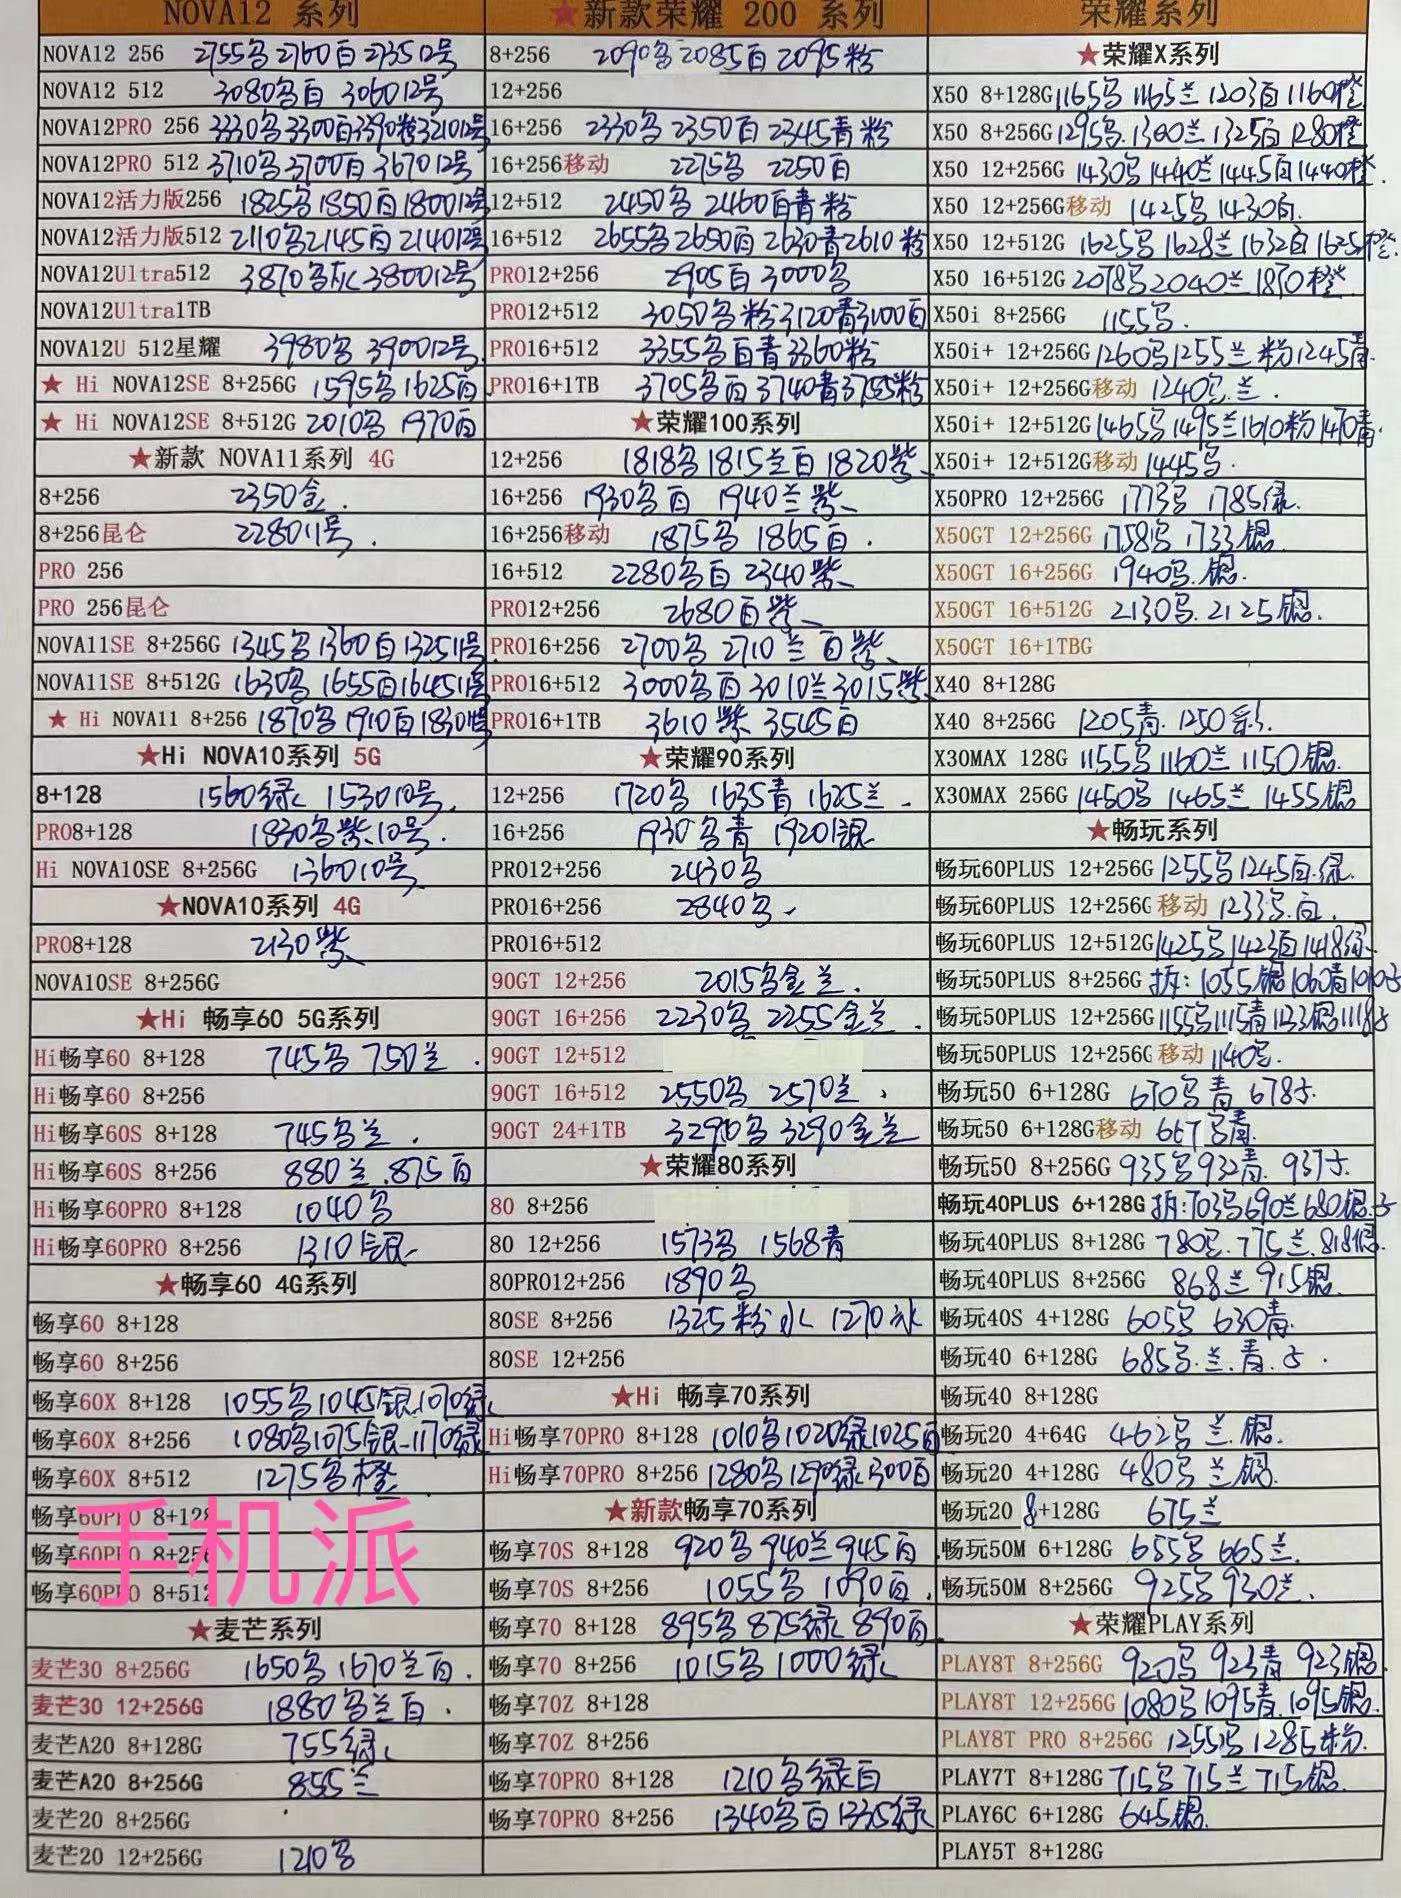 NOVA12 系列
NOVA12 256 2755鸟 2760百 2735 12号
NOVA12 512 3080鸟百 3060 12号
NOVA12PRO 256 3330鸟 3300百 3390粉 3210 12号
NOVA12PRO 512 3710鸟 3700百 3670 12号
NOVA12活力版256 1825鸟 1850百 1800 12号
NOVA12活力版512 2110鸟 2145百 2140 12号
NOVA12Ultra512 3870鸟灰 3800 12号
NOVA12Ultra1TB
NOVA12U 512星耀 3980鸟 3900 12号
★ Hi NOVA12SE 8+256G 1595鸟 1625百
★ Hi NOVA12SE 8+512G 2010鸟 1970百
★新款 NOVA11系列 4G
8+256 2350金
8+256昆仑 2280 11号
PRO 256
PRO 256昆仑
NOVA11SE 8+256G 1345鸟 1360百 1325 11号
NOVA11SE 8+512G 1630鸟 1655百 1645 11号
★ Hi NOVA11 8+256 1870鸟 1910百 1830 11号
★Hi NOVA10系列 5G
8+128 1560绿 1530 10号
PRO8+128 1830鸟紫 10号
Hi NOVA10SE 8+256G 1360 10号
★NOVA10系列 4G
PRO8+128 2130紫
NOVA10SE 8+256G
★Hi 畅享60 5G系列
Hi畅享60 8+128 745鸟 750兰
Hi畅享60 8+256
Hi畅享60S 8+128 745鸟兰
Hi畅享60S 8+256 880兰 875百
Hi畅享60PRO 8+128 1040鸟
Hi畅享60PRO 8+256 1310银
★畅享60 4G系列
畅享60 8+128
畅享60 8+256
畅享60X 8+128 1055鸟 1045银 1070绿
畅享60X 8+256 1080鸟 1075银 1170绿
畅享60X 8+512 1275鸟橙
畅享60PRO 8+128
畅享60PRO 8+256
畅享60PRO 8+512
手机派
★麦芒系列
麦芒30 8+256G 1650鸟 1670兰百
麦芒30 12+256G 1880鸟兰百
麦芒A20 8+128G 755绿
麦芒A20 8+256G 855兰
麦芒20 8+256G
麦芒20 12+256G 1210鸟
★新款荣耀 200 系列
8+256 2090鸟 2085百 2095粉
12+256
16+256 2330鸟 2350百 2345青粉
16+256移动 2275鸟 2250百
12+512 2450鸟 2460百青粉
16+512 2655鸟 2650百 2630青 2610粉
PRO12+256 2905百 3000鸟
PRO12+512 3050鸟粉 3120青 3100百
PRO16+512 3355鸟百青 3360粉
PRO16+1TB 3705鸟百 3740青 3755粉
★荣耀100系列
12+256 1818鸟 1815兰百 1820紫
16+256 1930鸟百 1940兰紫
16+256移动 1875鸟 1865百
16+512 2280鸟百 2340紫
PRO12+256 2680百紫
PRO16+256 2700鸟 2710兰百紫
PRO16+512 3000鸟百 3010兰 3015紫
PRO16+1TB 3610紫 3545百
★荣耀90系列
12+256 1720鸟 1635青 1625兰
16+256 1930鸟青 1920银
PRO12+256 2430鸟
PRO16+256 2840鸟
PRO16+512
90GT 12+256 2015鸟金兰
90GT 16+256 2230鸟 2255金兰
90GT 12+512
90GT 16+512 2550鸟 2570兰
90GT 24+1TB 3290鸟 3290金兰
★荣耀80系列
80 8+256
80 12+256 1573鸟 1568青
80PRO12+256 1890鸟
80SE 8+256 1325粉水 1270冰
80SE 12+256
★Hi 畅享70系列
Hi畅享70PRO 8+128 1010鸟 1020绿 1025百
Hi畅享70PRO 8+256 1280鸟 1290绿 1300百
★新款畅享70系列
畅享70S 8+128 920鸟 940兰 945百
畅享70S 8+256 1055鸟 1090百
畅享70 8+128 895鸟 875绿 890百
畅享70 8+256 1015鸟 1000绿
畅享70Z 8+128
畅享70Z 8+256
畅享70PRO 8+128 1210鸟绿白
畅享70PRO 8+256 1340鸟百 1335绿
荣耀系列
★荣耀X系列
X50 8+128G 1165鸟 1165兰 1203百 1160橙
X50 8+256G 1295鸟 1300兰 1325百 1280橙
X50 12+256G 1430鸟 1440兰 1445百 1440橙
X50 12+256G移动 1425鸟 1430百
X50 12+512G 1625鸟 1628兰 1632百 1625橙
X50 16+512G 2078鸟 2040兰 1870橙
X50i 8+256G 1155鸟
X50i+ 12+256G 1260鸟 1255兰粉 1245青
X50i+ 12+256G移动 1240鸟兰
X50i+ 12+512G 1465鸟 1495兰 1610粉 1470青
X50i+ 12+512G移动 1445鸟
X50PRO 12+256G 1773鸟 1785绿
X50GT 12+256G 1758鸟 1733银
X50GT 16+256G 1940鸟银
X50GT 16+512G 2130鸟 2125银
X50GT 16+1TBG
X40 8+128G
X40 8+256G 1205青 1250彩
X30MAX 128G 1155鸟 1160兰 1150银
X30MAX 256G 1450鸟 1465兰 1455银
★畅玩系列
畅玩60PLUS 12+256G 1255鸟 1245百绿
畅玩60PLUS 12+256G 移动 1233鸟百
畅玩60PLUS 12+512G 1425鸟 1423百 1418绿
畅玩50PLUS 8+256G 拆: 1055银 1060青 1010
畅玩50PLUS 12+256G 1155鸟 1115青 1133银 1118
畅玩50PLUS 12+256G 移动 1140鸟
畅玩50 6+128G 670鸟青 678
畅玩50 6+128G移动 667鸟青
畅玩50 8+256G 935鸟 932青 937
畅玩40PLUS 6+128G 拆: 703鸟 690兰 680银
畅玩40PLUS 8+128G 780鸟 775兰 818银
畅玩40PLUS 8+256G 868兰 915银
畅玩40S 4+128G 605鸟 630青
畅玩40 6+128G 685鸟兰青
畅玩40 8+128G
畅玩20 4+64G 462鸟兰银
畅玩20 4+128G 480鸟兰银
畅玩20 8+128G 675兰
畅玩50M 6+128G 655鸟 665兰
畅玩50M 8+256G 925鸟 930兰
★荣耀PLAY系列
PLAY8T 8+256G 920鸟 923青 923银
PLAY8T 12+256G 1080鸟 1095青 1095银
PLAY8T PRO 8+256G 1255鸟 1285粉
PLAY7T 8+128G 715鸟 715兰 715银
PLAY6C 6+128G 645银
PLAY5T 8+128G